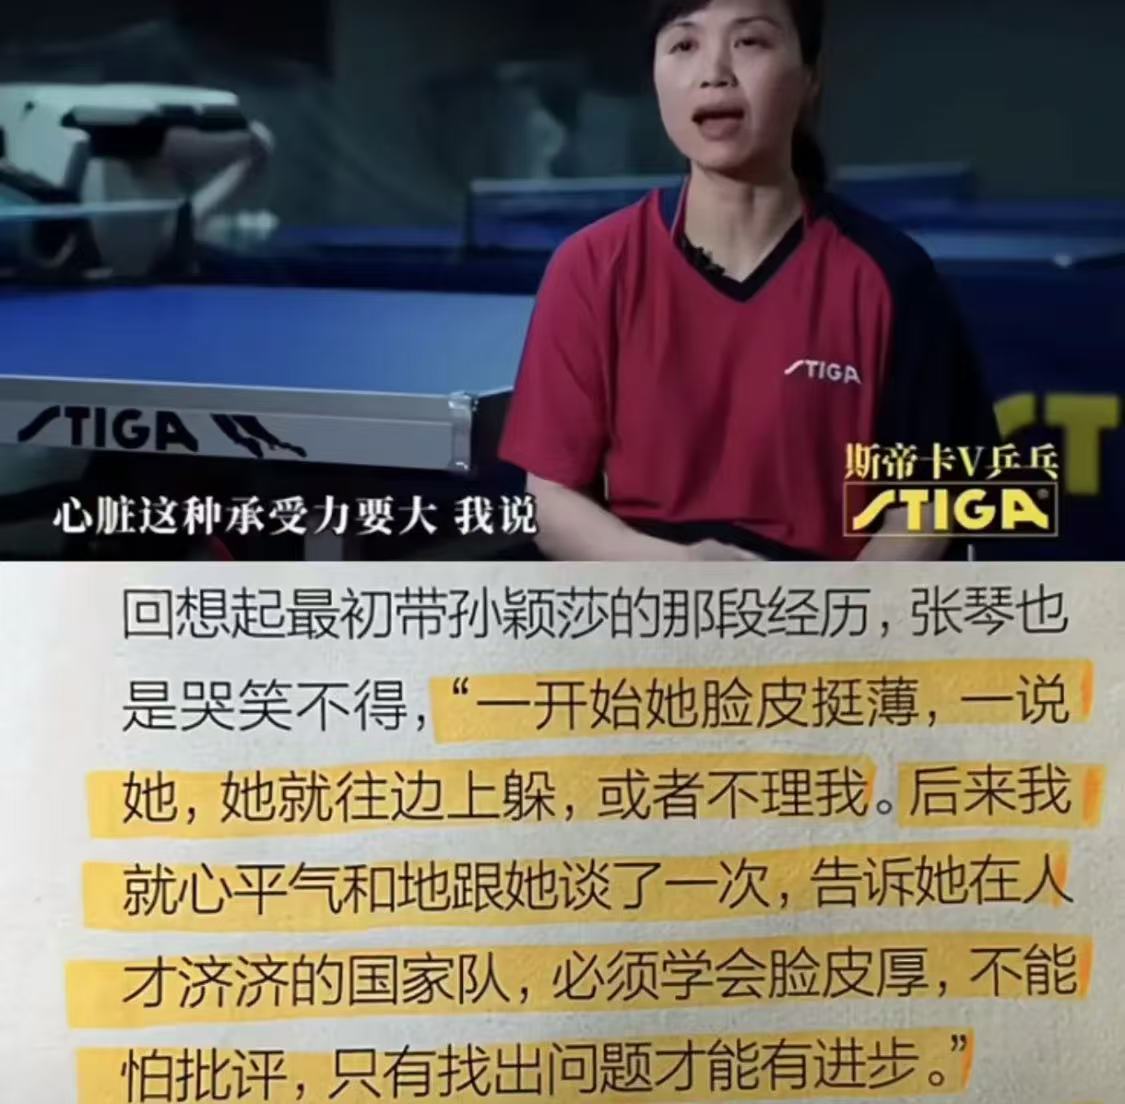 STIGA
STIGA
ST
斯帝卡V乒乓
STIGA
心脏这种承受力要大 我说
回想起最初带孙颖莎的那段经历，张琴也
是哭笑不得，“一开始她脸皮挺薄，一说
她，她就往边上躲，或者不理我。后来我
就心平气和地跟她谈了一次，告诉她在人
才济济的国家队，必须学会脸皮厚，不能
怕批评，只有找出问题才能有进步。”